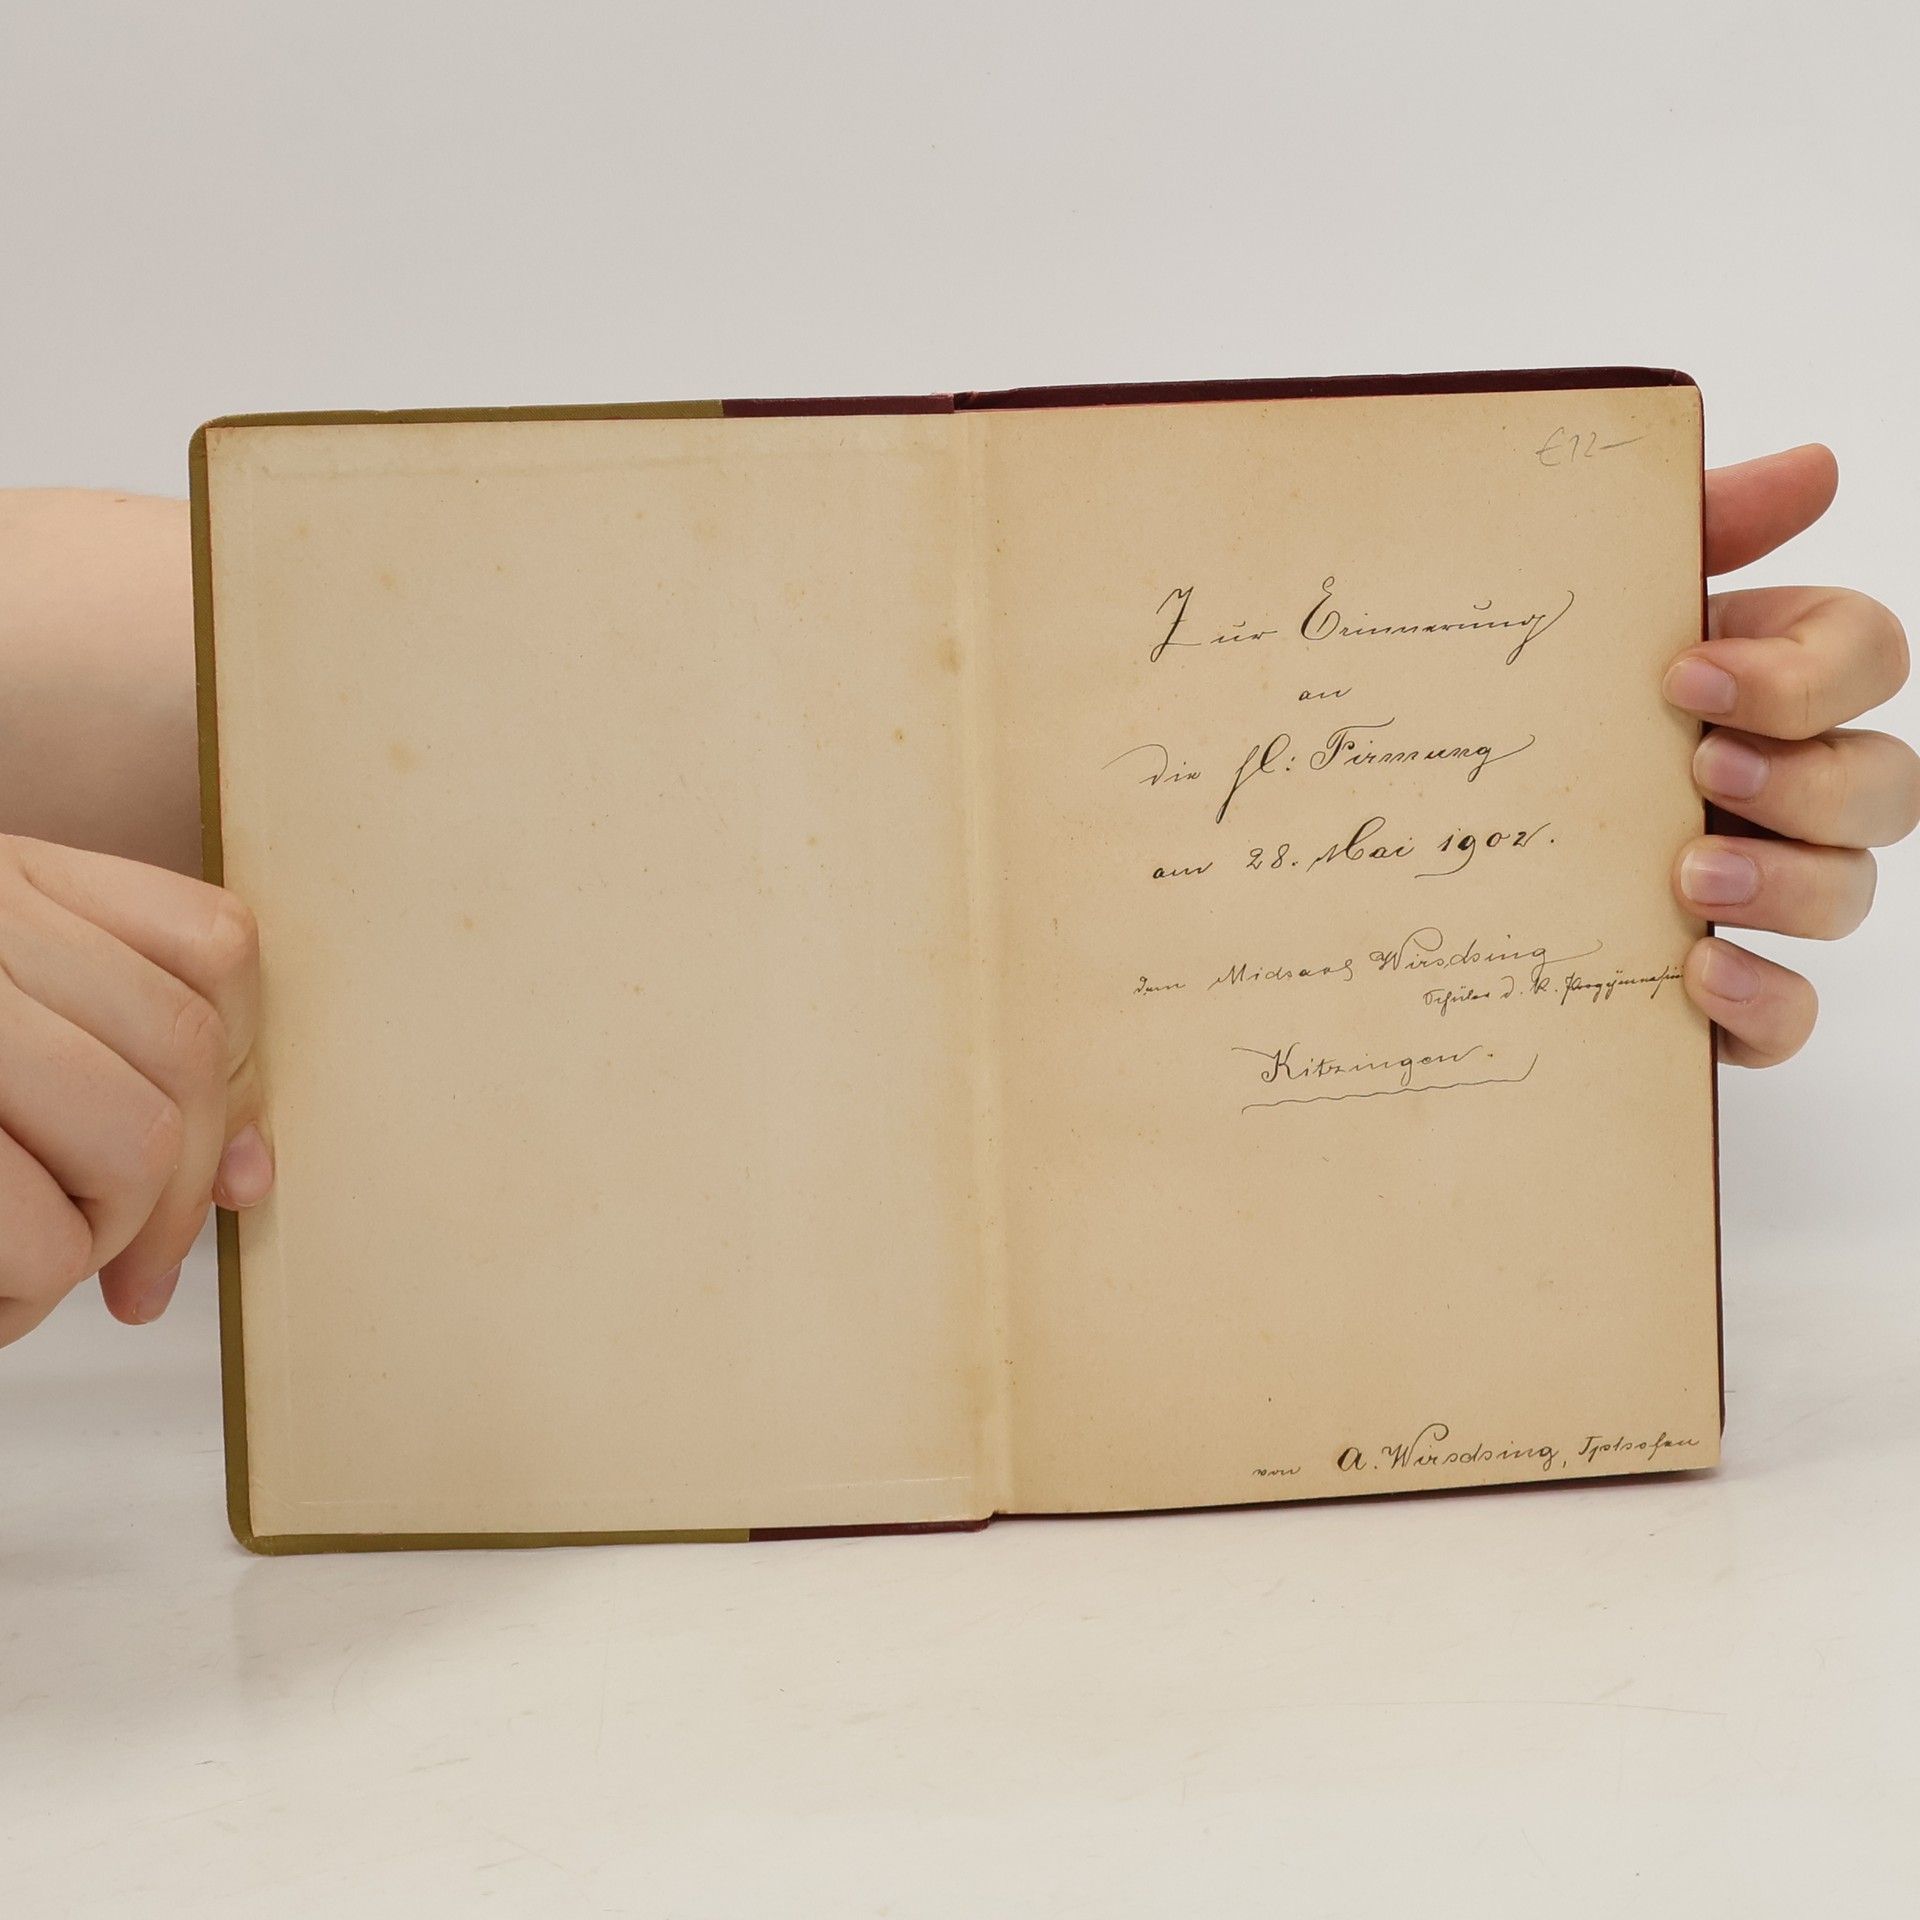 €12—
Zur Erinnerung
an
die hl: Firmung
am 28. Mai 1902.
dem Michael Wirsching
Schüler d. K. Progymnasiu
Kitzingen.
von A. Wirsching, Iphofen